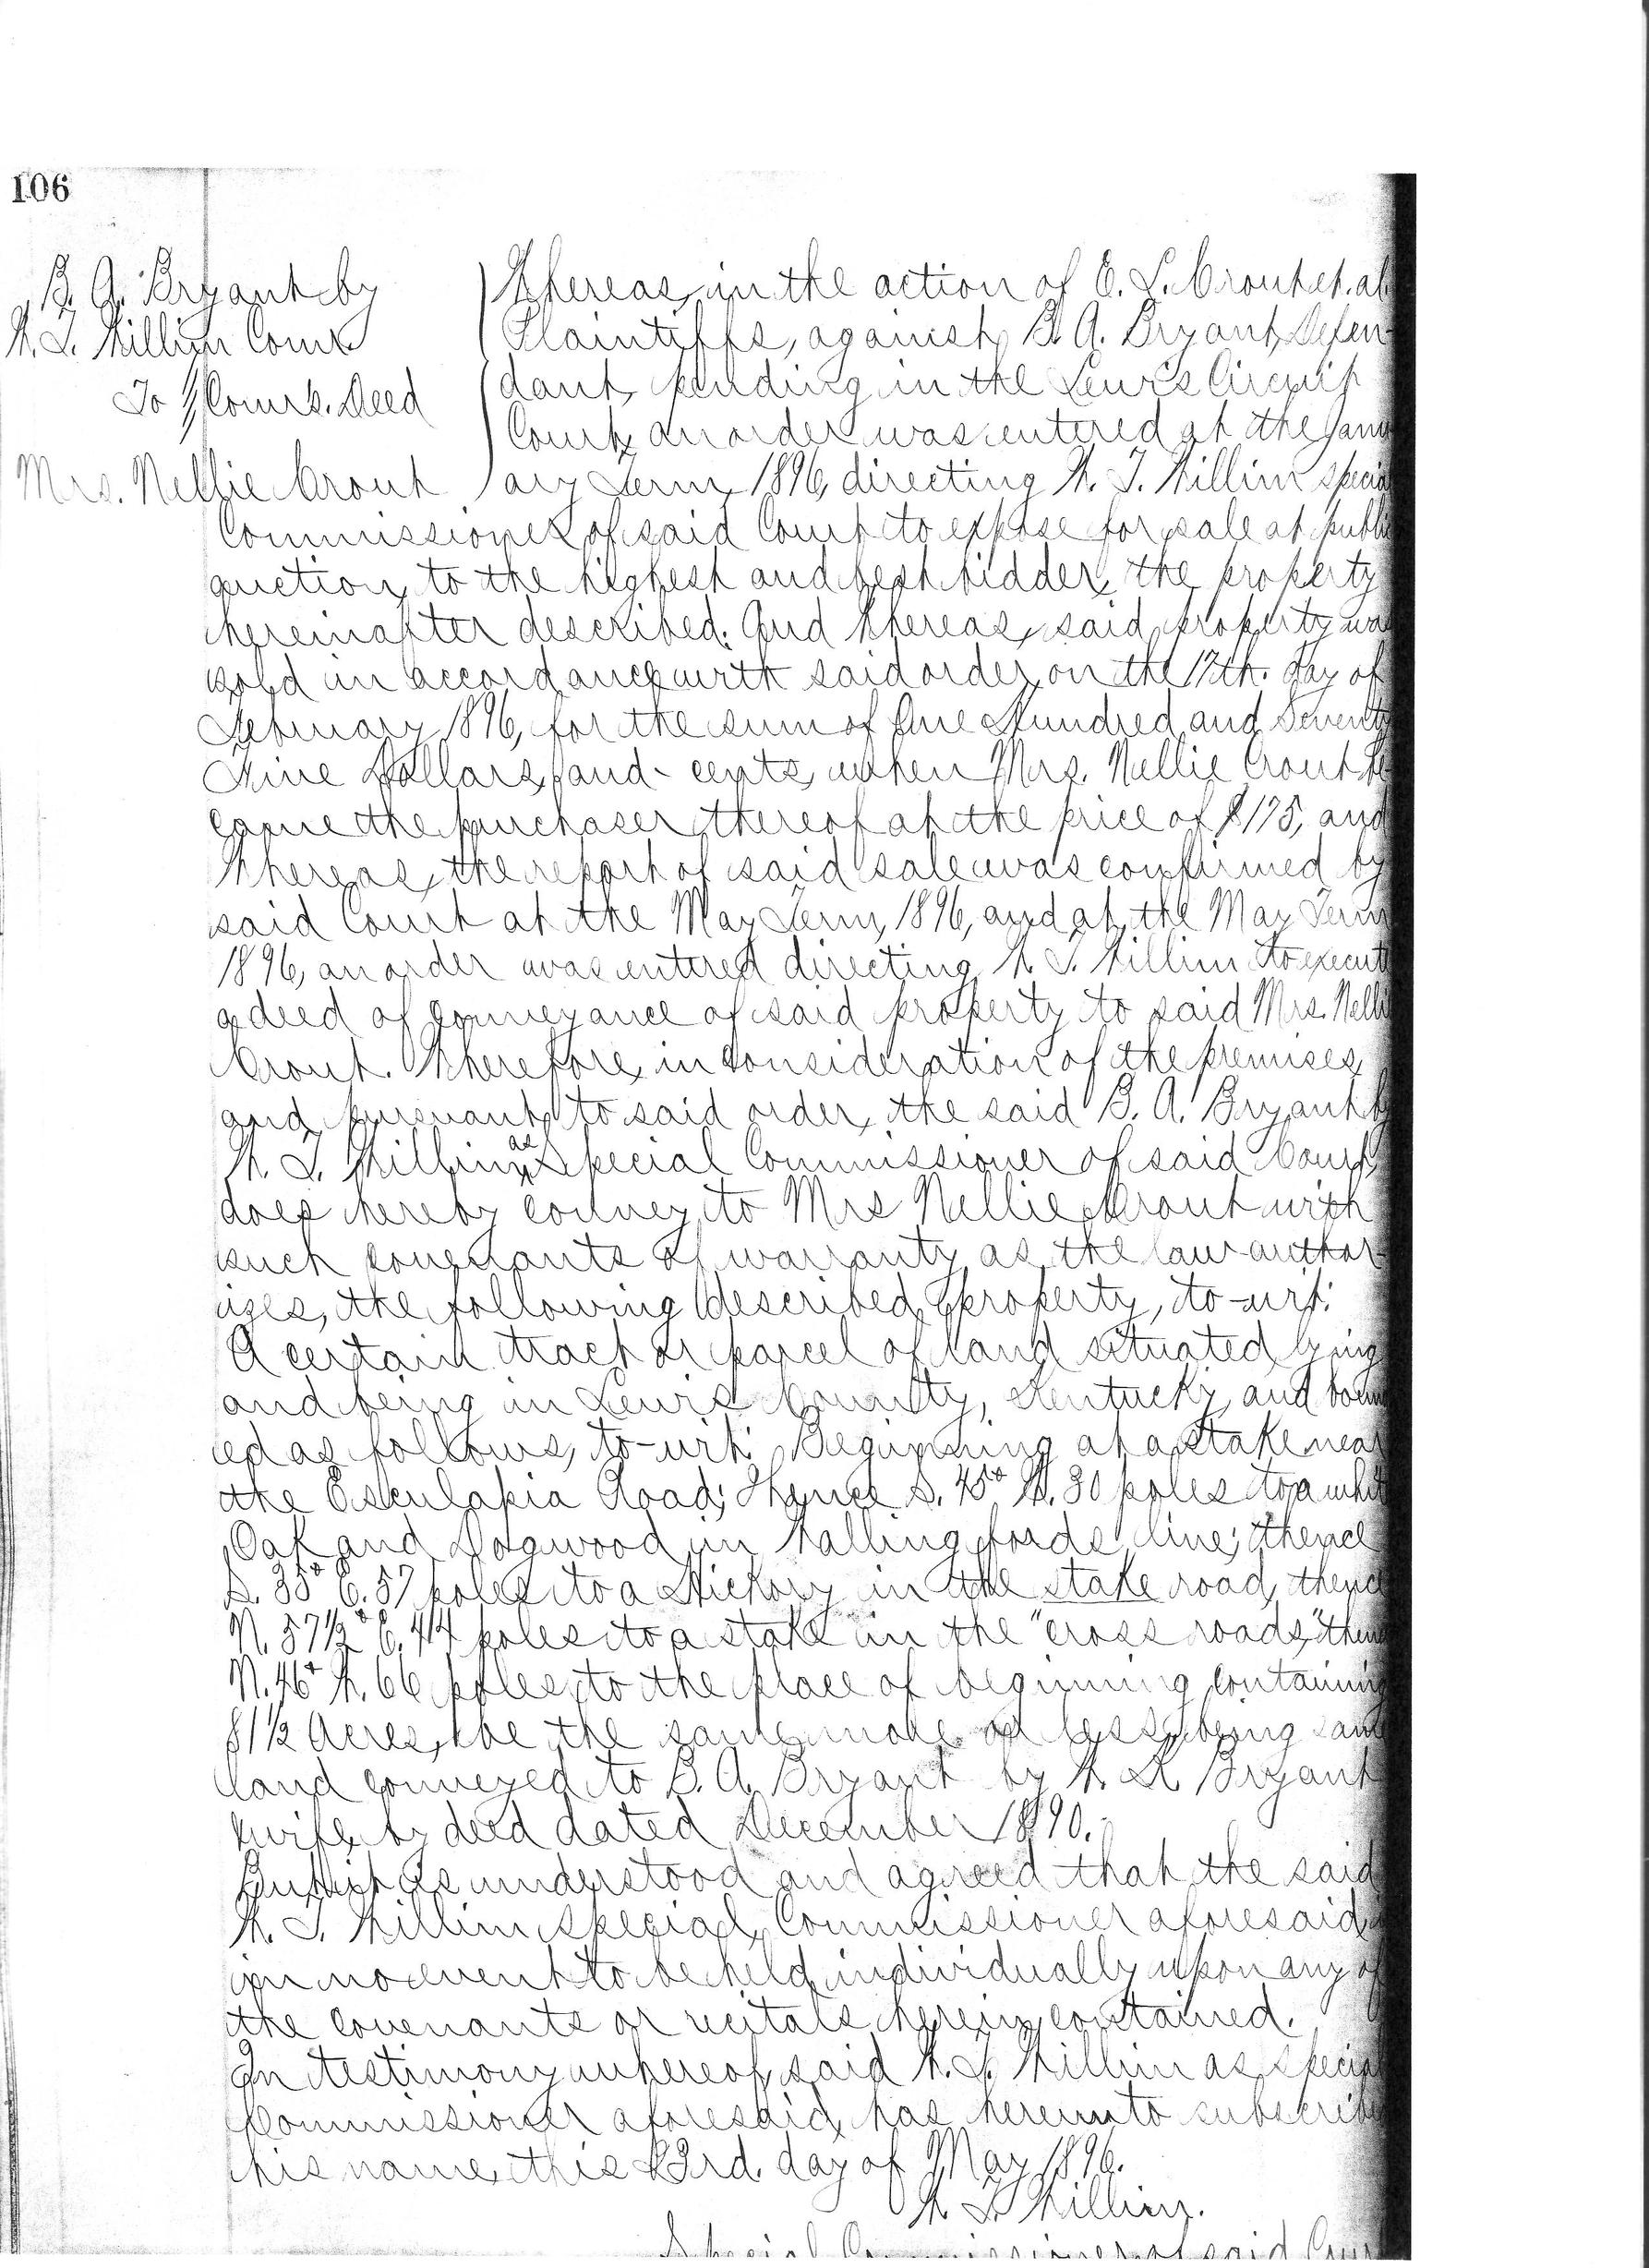 106
B. A. Bryant by
W. T. Millim Comr
To // Comrs. Deed
Mrs. Nellie Crout
Whereas, in the action of E. L. Crout et. al
Plaintiffs, against B. A. Bryant, Defen-
dant, pending in the Lewis Circuit
Court, an order was entered at the Janu
ary Term, 1896, directing W. T. Millim special
Commissioner of said Court to expose for sale at publi
auction, to the highest and best bidder, the property
hereinafter described. And Whereas, said property was
sold in accordance with said order, on the 17th. day of
February, 1896, for the sum of One Hundred and Seventy
Five Dollars, and - cents, when Mrs. Nellie Crout be
came the purchaser, thereof at the price of $175, and
Whereas, the report of said sale was confirmed by
said Court at the May Term, 1896, and at the May Term
1896, an order was entered directing W. T. Millim to execute
a deed of conveyance of said property to said Mrs. Nelli
Crout. Wherefore, in consideration of the premises,
and pursuant to said order, the said B. A. Bryant by
W. T. Millim, as Special Commissioner of said Court,
does hereby convey to Mrs Nellie Crout with
such covenants of warranty as the law author-
izes, the following described property, to-wit:
A certain tract or parcel of land situated lying
and being in Lewis County, Kentucky, and boun
ed as follows, to-wit: Beginning at a stake near
the Esculapia Road; Thence S. 45° W. 30 poles to a whit
Oak and Dogwood in Wallingfords line; thence
S. 35° E. 57 poles to a Hickory in the stake road, thence
N. 57½° E. 44 poles to a stake in the "cross roads," then
N. 46° W. 66 poles, to the place of beginning, containing
81½ Acres, be the same more or less, being same
land conveyed to B. A. Bryant by W. H. Bryant
& wife, by deed dated December 1890.
But it is understood and agreed that the said
W. T. Millim, Special Commissioner aforesaid,
in no event to be held individually upon any of
the covenants or recitals herein contained.
In testimony whereof, said W. T. Millim as special
Commissioner aforesaid, has hereunto subscribe
his name, this 23rd. day of May 1896.
W. T. Millim.
Special Commissioner of said Court